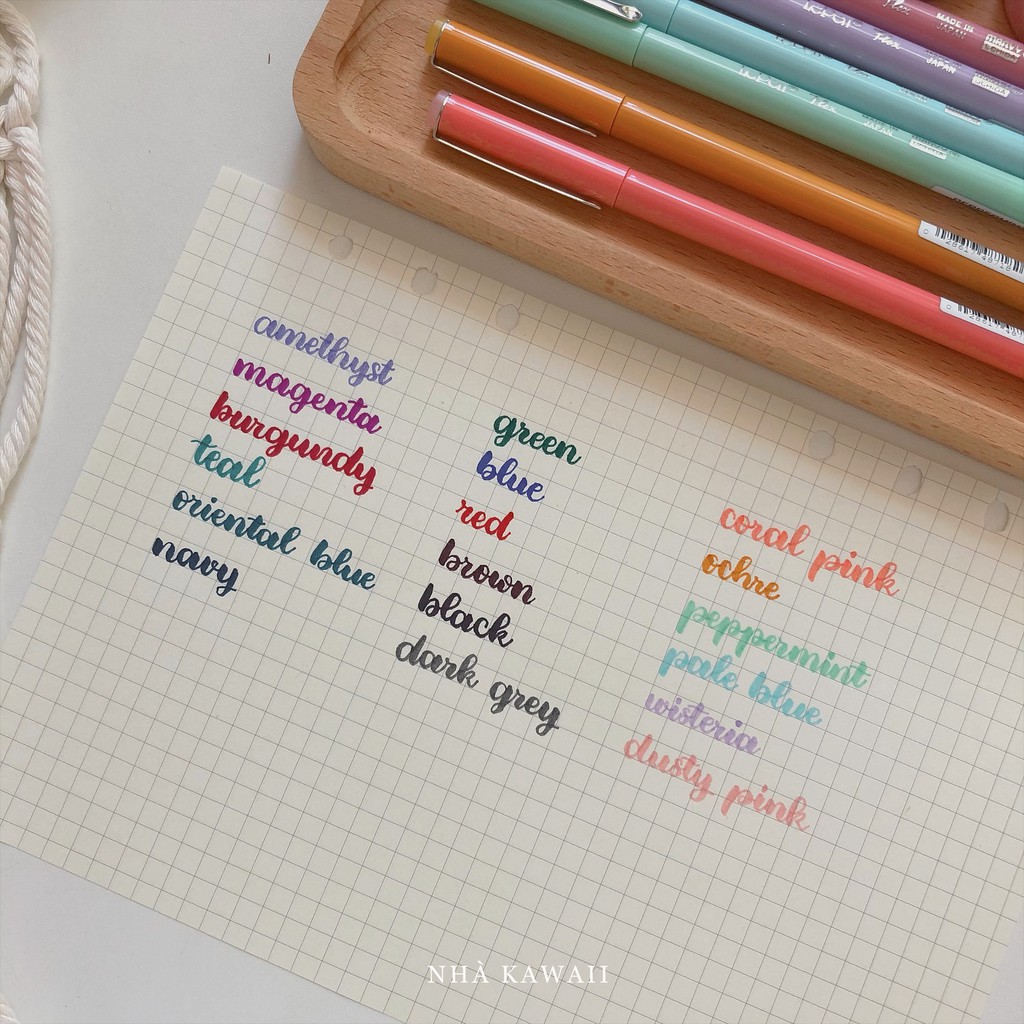 MADE IN
JAPAN
amethyst
magenta
burgundy
teal
oriental blue
navy
green
blue
red
brown
black
dark grey
coral pink
ochre
peppermint
pale blue
wisteria
dusty pink
NHÀ KAWAII